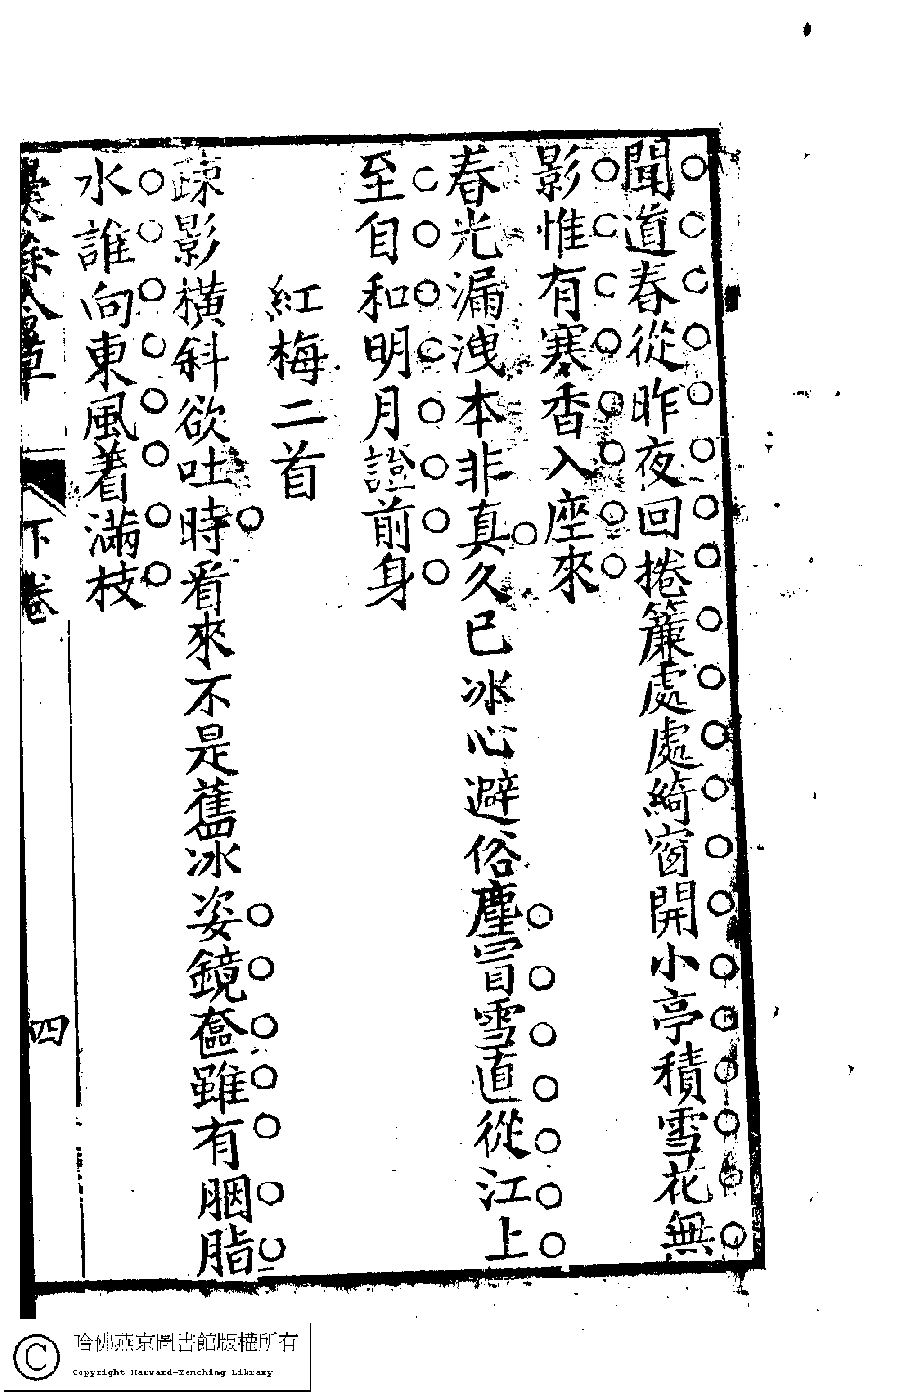 聞道春從昨夜回捲簾處處綺窗開小亭積雪花無
影惟有寒香入座來
春光漏洩本非真久已冰心避俗塵冒雪直從江上
至自和明月證前身
紅梅二首
疎影橫斜欲吐時看來不是舊冰姿鏡奩雖有胭脂
水誰向東風着滿枝
下卷
四
哈佛燕京圖書館版權所有
Copyright Harvard-Yenching Library